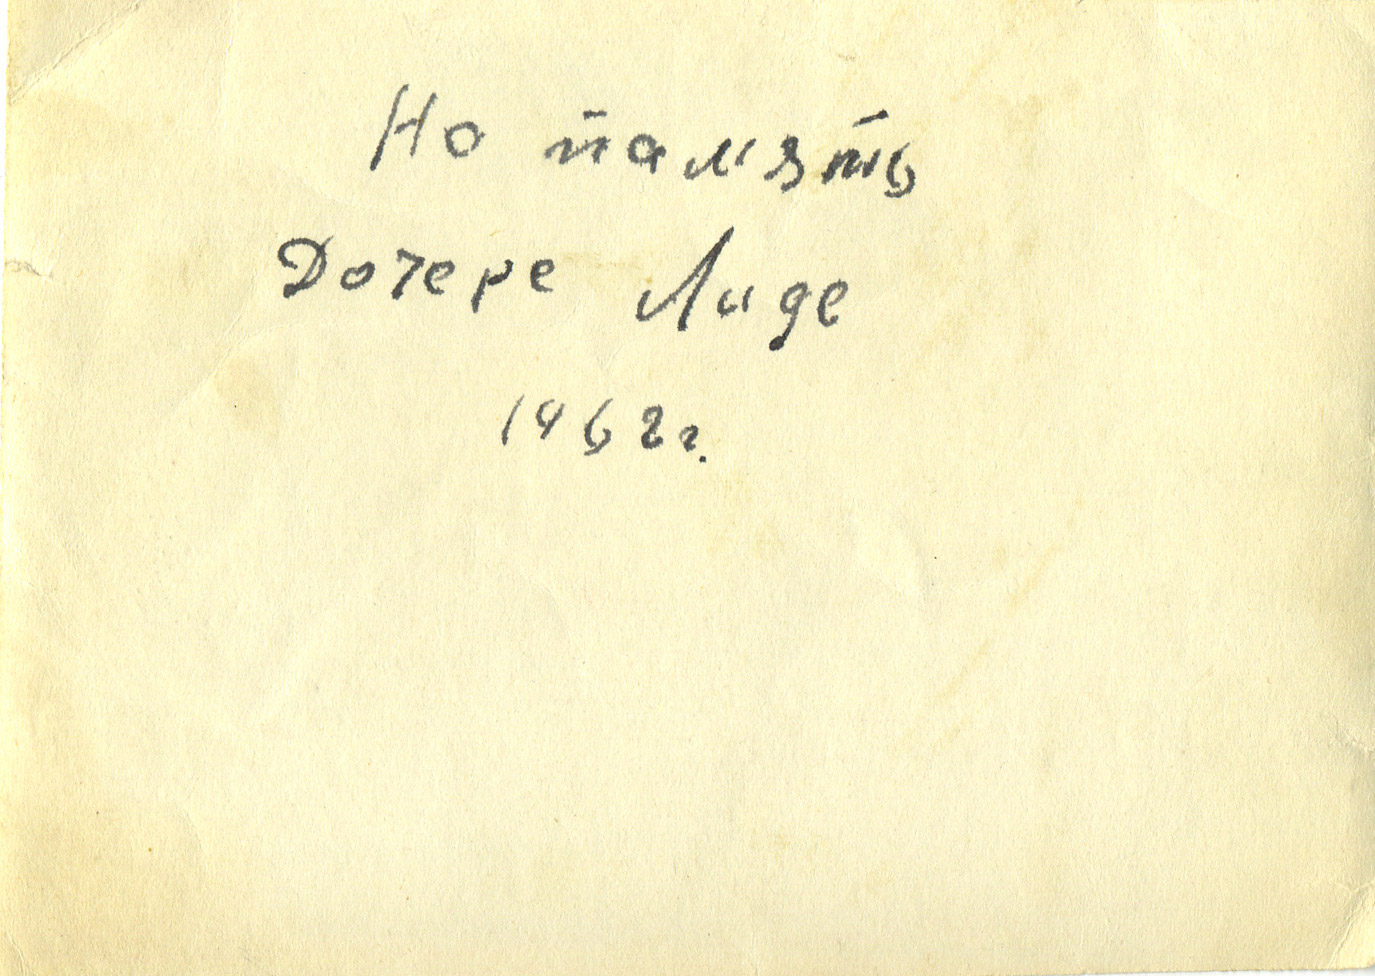 На память
Дочере Лиде
1962г.